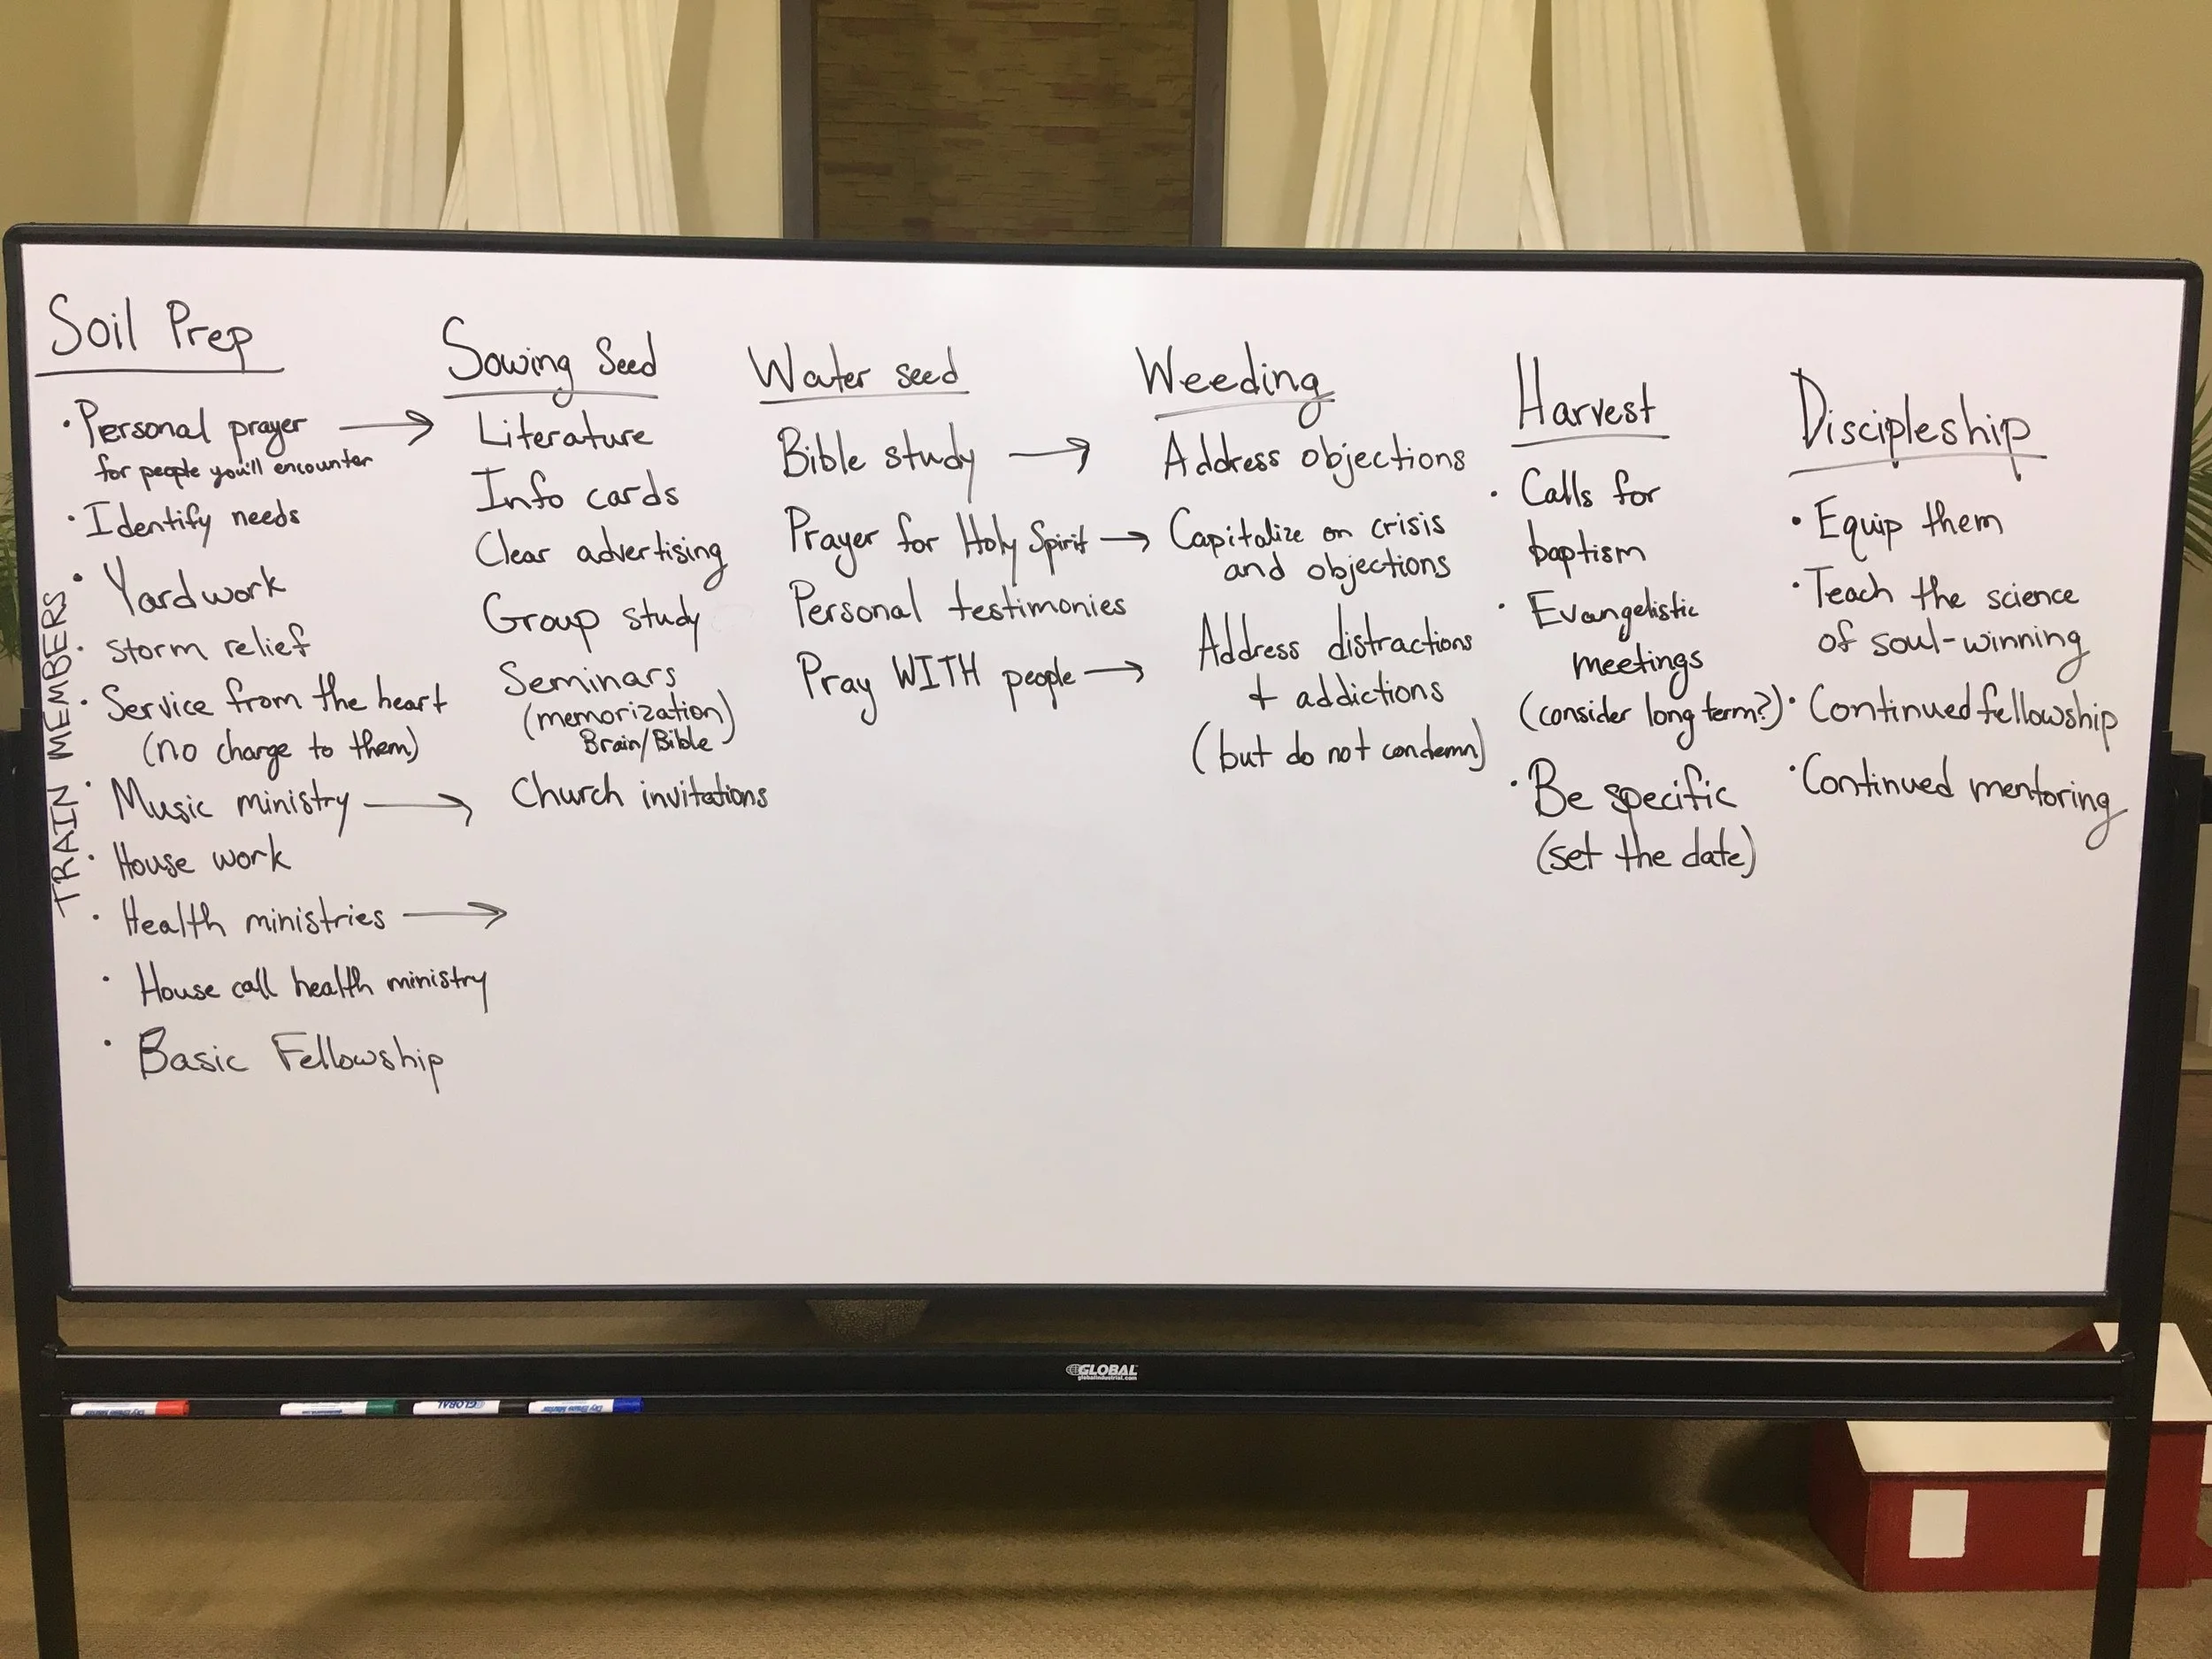 Soil Prep
• Personal prayer →
for people you'll encounter
• Identify needs
• Yardwork
• storm relief
• Service from the heart
(no charge to them)
• Music ministry →
• House work
• Health ministries →
• House call health ministry
• Basic Fellowship
TRAIN MEMBERS
Sowing Seed
Literature
Info cards
Clear advertising
Group study
Seminars
(memorization)
Brain/Bible
Church invitations
Water seed
Bible study →
Prayer for Holy Spirit →
Personal testimonies
Pray WITH people →
Weeding
Address objections
Capitalize on crisis
and objections
Address distractions
+ addictions
(but do not condemn)
Harvest
• Calls for
baptism
• Evangelistic
meetings
(consider long term?)
• Be specific
(set the date)
Discipleship
• Equip them
• Teach the science
of soul-winning
• Continued fellowship
• Continued mentoring
GLOBAL
globalindustrial.com
GLOBAL